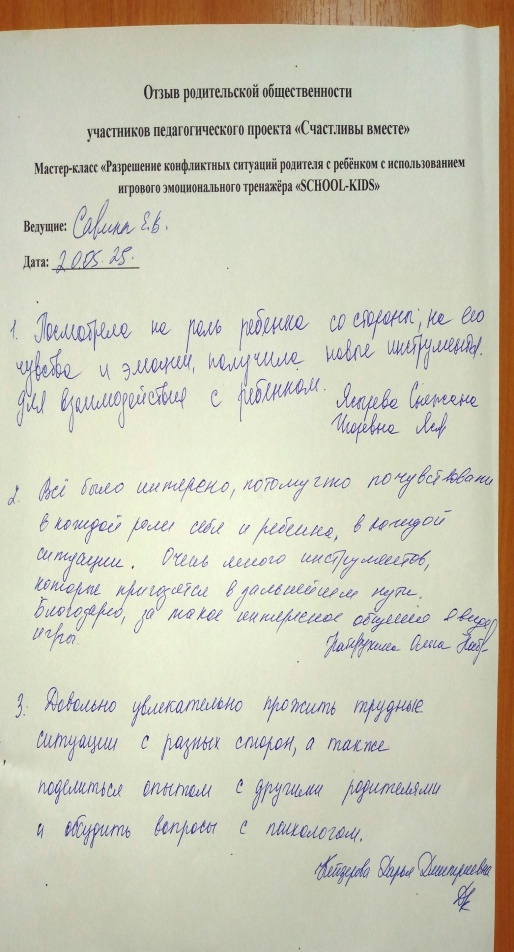 Отзыв родительской общественности
участников педагогического проекта «Счастливы вместе»
Мастер-класс «Разрешение конфликтных ситуаций родителя с ребёнком с использованием
игрового эмоционального тренажёра «SCHOOL-KIDS»
Ведущие: Савина Е.В.
Дата: 20.05.25.
1. Посмотрела на роль ребенка со стороны, на его
чувства и эмоции, получила новые инструменты
для взаимодействия с ребенком.
Снежана
Игоревна
2. Всё было интересно, потому что почувствовали
в каждой роли себя и ребенка, в каждой
ситуации. Очень много инструментов,
которые пригодятся в дальнейшем пути.
Благодарю, за такое интересное общение в виде
игры.
Ольга
3. Довольно увлекательно прожить трудные
ситуации с разных сторон, а также
поделиться опытом с другими родителями
и обсудить вопросы с психологом.
Дарья Дмитриевна